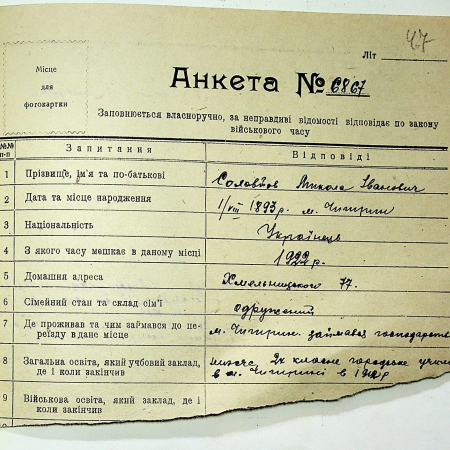 47
Літ
Місце
для
фотокартки
Анкета № 6867
Заповнюється власноручно, за неправдиві відомості відповідає по закону
військового часу
№№ п-п Запитання Відповіді
1 Прізвище, ім'я та по-батькові Соловйов Микола Іванович
2 Дата та місце народження 1/VIII 1893 р. м. Чигирин
3 Національність Українець
4 З якого часу мешкає в даному місці 1922 р.
5 Домашня адреса Хмельницького 77.
6 Сімейний стан та склад сім'ї одружений
7 Де проживав та чим займався до переїзду в дане місце м. Чигирин. займався господарств
8 Загальна освіта, який учбовий заклад, де і коли закінчив 2х класне городське в м. Чигирині в
9 Військова освіта, який заклад, де і коли закінчив